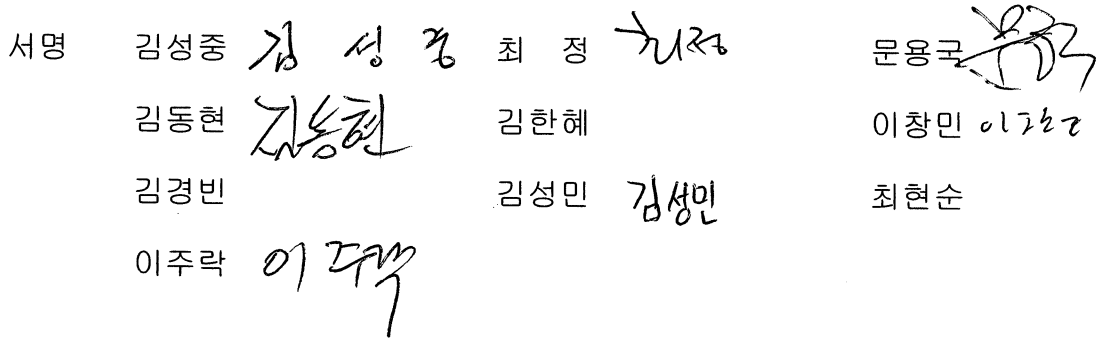 서명 김성중 김 성 중 최 정 최정 문용국
김동현 김동현 김한혜 이창민
김경빈 김성민 김성민 최현순
이주락 이주락